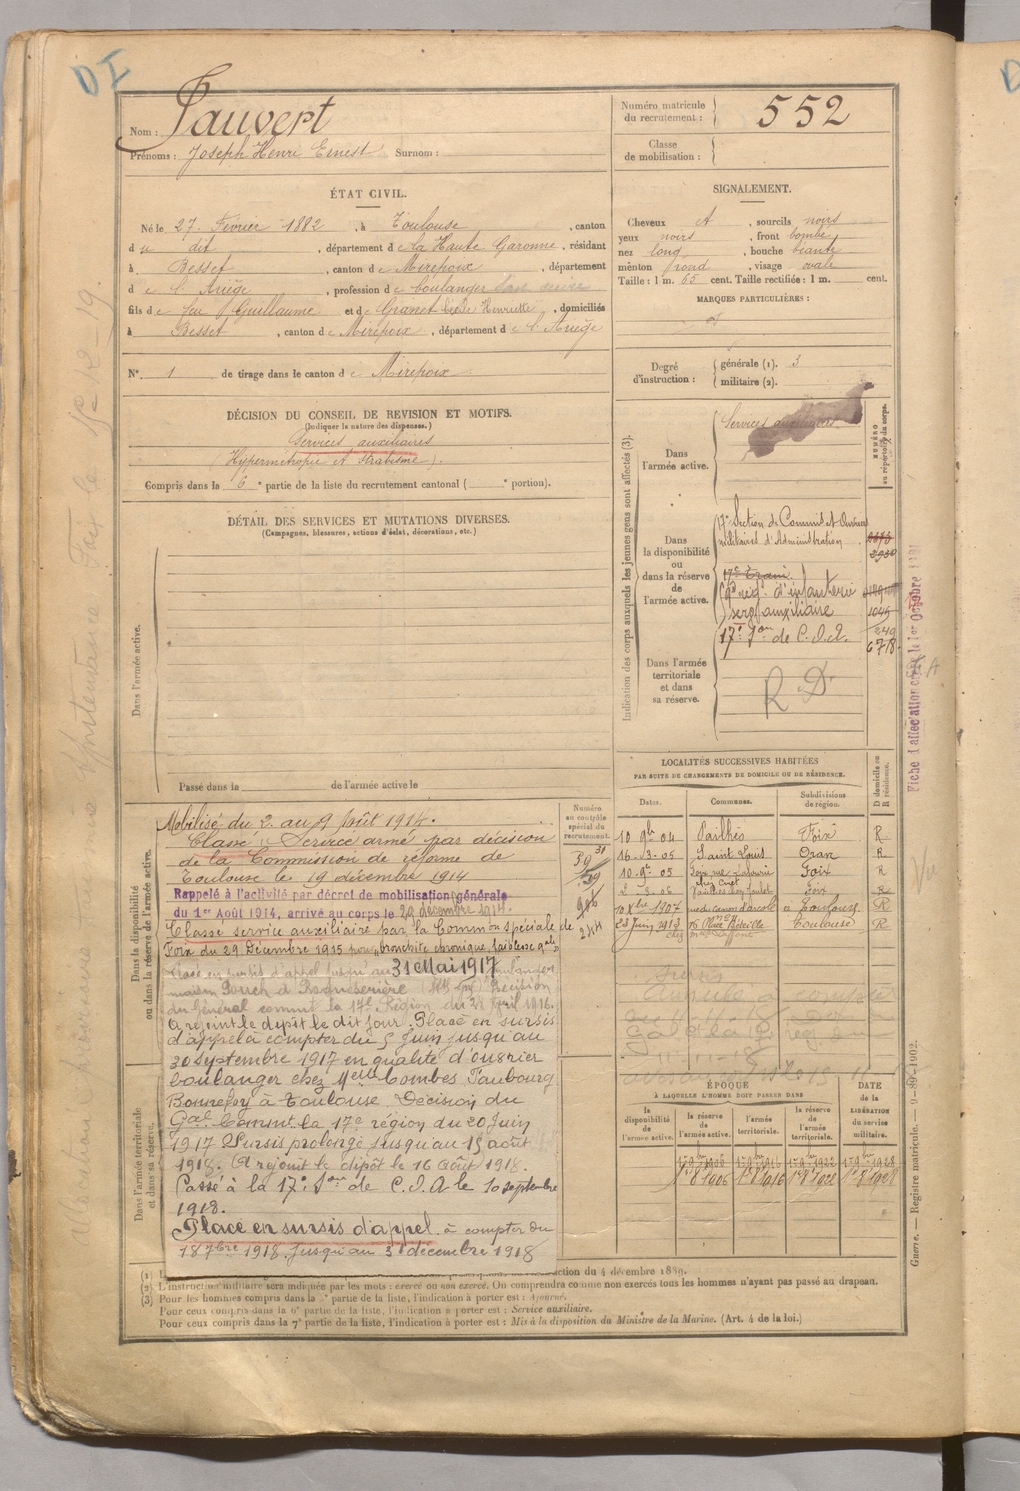 DI
Nom : Fauvert
Prénoms : Joseph Henri Ernest Surnom :
Numéro matricule du recrutement : 552
Classe de mobilisation :
ÉTAT CIVIL.
Né le 27 Février 1882, à Toulouse, canton
du dit, département de la Haute Garonne, résidant
à Besset, canton de Mirepoix, département
de l'Ariège, profession de boulanger
fils de feu Guillaume et de Granet Henriette, domiciliés
à Besset, canton de Mirepoix, département de l'Ariège
N° 1 de tirage dans le canton de Mirepoix
DÉCISION DU CONSEIL DE REVISION ET MOTIFS.
(Indiquer la nature des dispenses.)
Services auxiliaires
(Hypermétropie et strabisme).
Compris dans la 6e partie de la liste du recrutement cantonal ( e portion).
DÉTAIL DES SERVICES ET MUTATIONS DIVERSES.
(Campagnes, blessures, actions d'éclat, décorations, etc.)
Dans l'armée active.
Passé dans la de l'armée active le
SIGNALEMENT.
Cheveux et, sourcils noirs
yeux noirs, front bombé
nez long, bouche béante
menton rond, visage ovale
Taille : 1 m. 65 cent. Taille rectifiée : 1 m. cent.
MARQUES PARTICULIÈRES :
Degré d'instruction : générale (1). 3
militaire (2).
Indication des corps auxquels les jeunes gens sont affectés (3).
NUMÉRO au répertoire du corps.
Dans l'armée active.
Services auxiliaires
Dans la disponibilité ou dans la réserve de l'armée active.
17e Section de Commis et Ouvriers
militaires d'Administration
17e Train
9e rég. d'infanterie
serv. auxiliaire
1045
249
17e Son de C.O.A. 6718
Dans l'armée territoriale et dans sa réserve.
R D
Dans la disponibilité ou dans la réserve de l'armée active.
Numéro au contrôle spécial du recrutement.
Mobilisé du 2 au 9 Août 1914.
Classé Service armé par décision
de la Commission de réforme de
Toulouse le 19 décembre 1914
Rappelé à l'activité par décret de mobilisation générale
du 1er Août 1914, arrivé au corps le 29 décembre 1914.
Classé service auxiliaire par la Common spéciale de
Foix du 29 Décembre 1915 pour "bronchite chronique, faiblesse gale"
Placé en sursis d'appel jusqu'au 31 Mai 1917 boulanger
maison Décision
du Général commt la 17e Région du 28 Avril 1916.
A rejoint le dépôt le dit jour. Placé en sursis
d'appel à compter du 5 Juin jusqu'au
30 Septembre 1917 en qualité d'ouvrier
boulanger chez Melle Combes Faubourg
Bonnefoy à Toulouse. Décision du
Gal Commt la 17e région du 20 Juin
1917 Sursis prolongé jusqu'au 15 août
1918. A rejoint le dépôt le 16 août 1918.
Passé à la 17e Son de C.O.A le 10 septembre
1918.
Placé en sursis d'appel à compter du
18 7bre 1918 jusqu'au 31 décembre 1918
Dans l'armée territoriale et dans sa réserve.
LOCALITÉS SUCCESSIVES HABITÉES
PAR SUITE DE CHANGEMENTS DE DOMICILE OU DE RÉSIDENCE.
Dates. Communes. Subdivisions de région. D domicile ou R résidence.
10 9bre 04 Pailhès Foix R
16-3-05 Saint Louis Oran R
10-9bre 05 Foix Foix R
2-3-06 Foix R
10 Xbre 1907 rue du canon d'arcole à Toulouse R
23 Juin 1913 Toulouse R
Sursis
Annulé à compter
ÉPOQUE
À LAQUELLE L'HOMME DOIT PASSER DANS
la disponibilité de l'armée active. la réserve de l'armée active. l'armée territoriale. la réserve de l'armée territoriale. DATE de la LIBÉRATION du service militaire.
Fiche d'affectation
Guerre. — Registre matricule. — 9-89-1902.
(2) L'instruction militaire sera indiquée par les mots : exercé ou non exercé. On comprendra comme non exercés tous les hommes n'ayant pas passé au drapeau.
(3) Pour les hommes compris dans la partie de la liste, l'indication à porter est : Ajourné.
Pour ceux compris dans la 6e partie de la liste, l'indication à porter est : Service auxiliaire.
Pour ceux compris dans la 7e partie de la liste, l'indication à porter est : Mis à la disposition du Ministre de la Marine. (Art. 4 de la loi.)